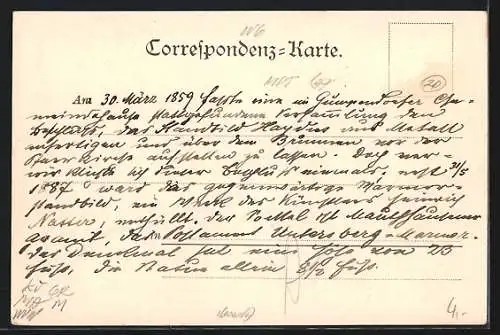 Correspondenz-Karte.
Am 30. März 1859 faßte eine im Gumpendorfer Ge-
meindehause stattgefundene Versammlung den
Beschluss, das Standbild Haydns aus Metall
anfertigen und über dem Brunnen vor der
Pfarrkirche aufstellen zu laßen. Doch ver-
wirklichte sich dieser Beschluss niemals, erst 31/5
1887 ward das gegenwärtige Marmor-
standbild, ein Werk des Künstlers Heinrich
Natter, enthüllt. Der Sockel ist Mauthhausener
Granit, das Postament Untersberg-Marmor.
das Denkmal hat eine Höhe von 23
Fuss, die Statue allein Fuss.
20
4,-